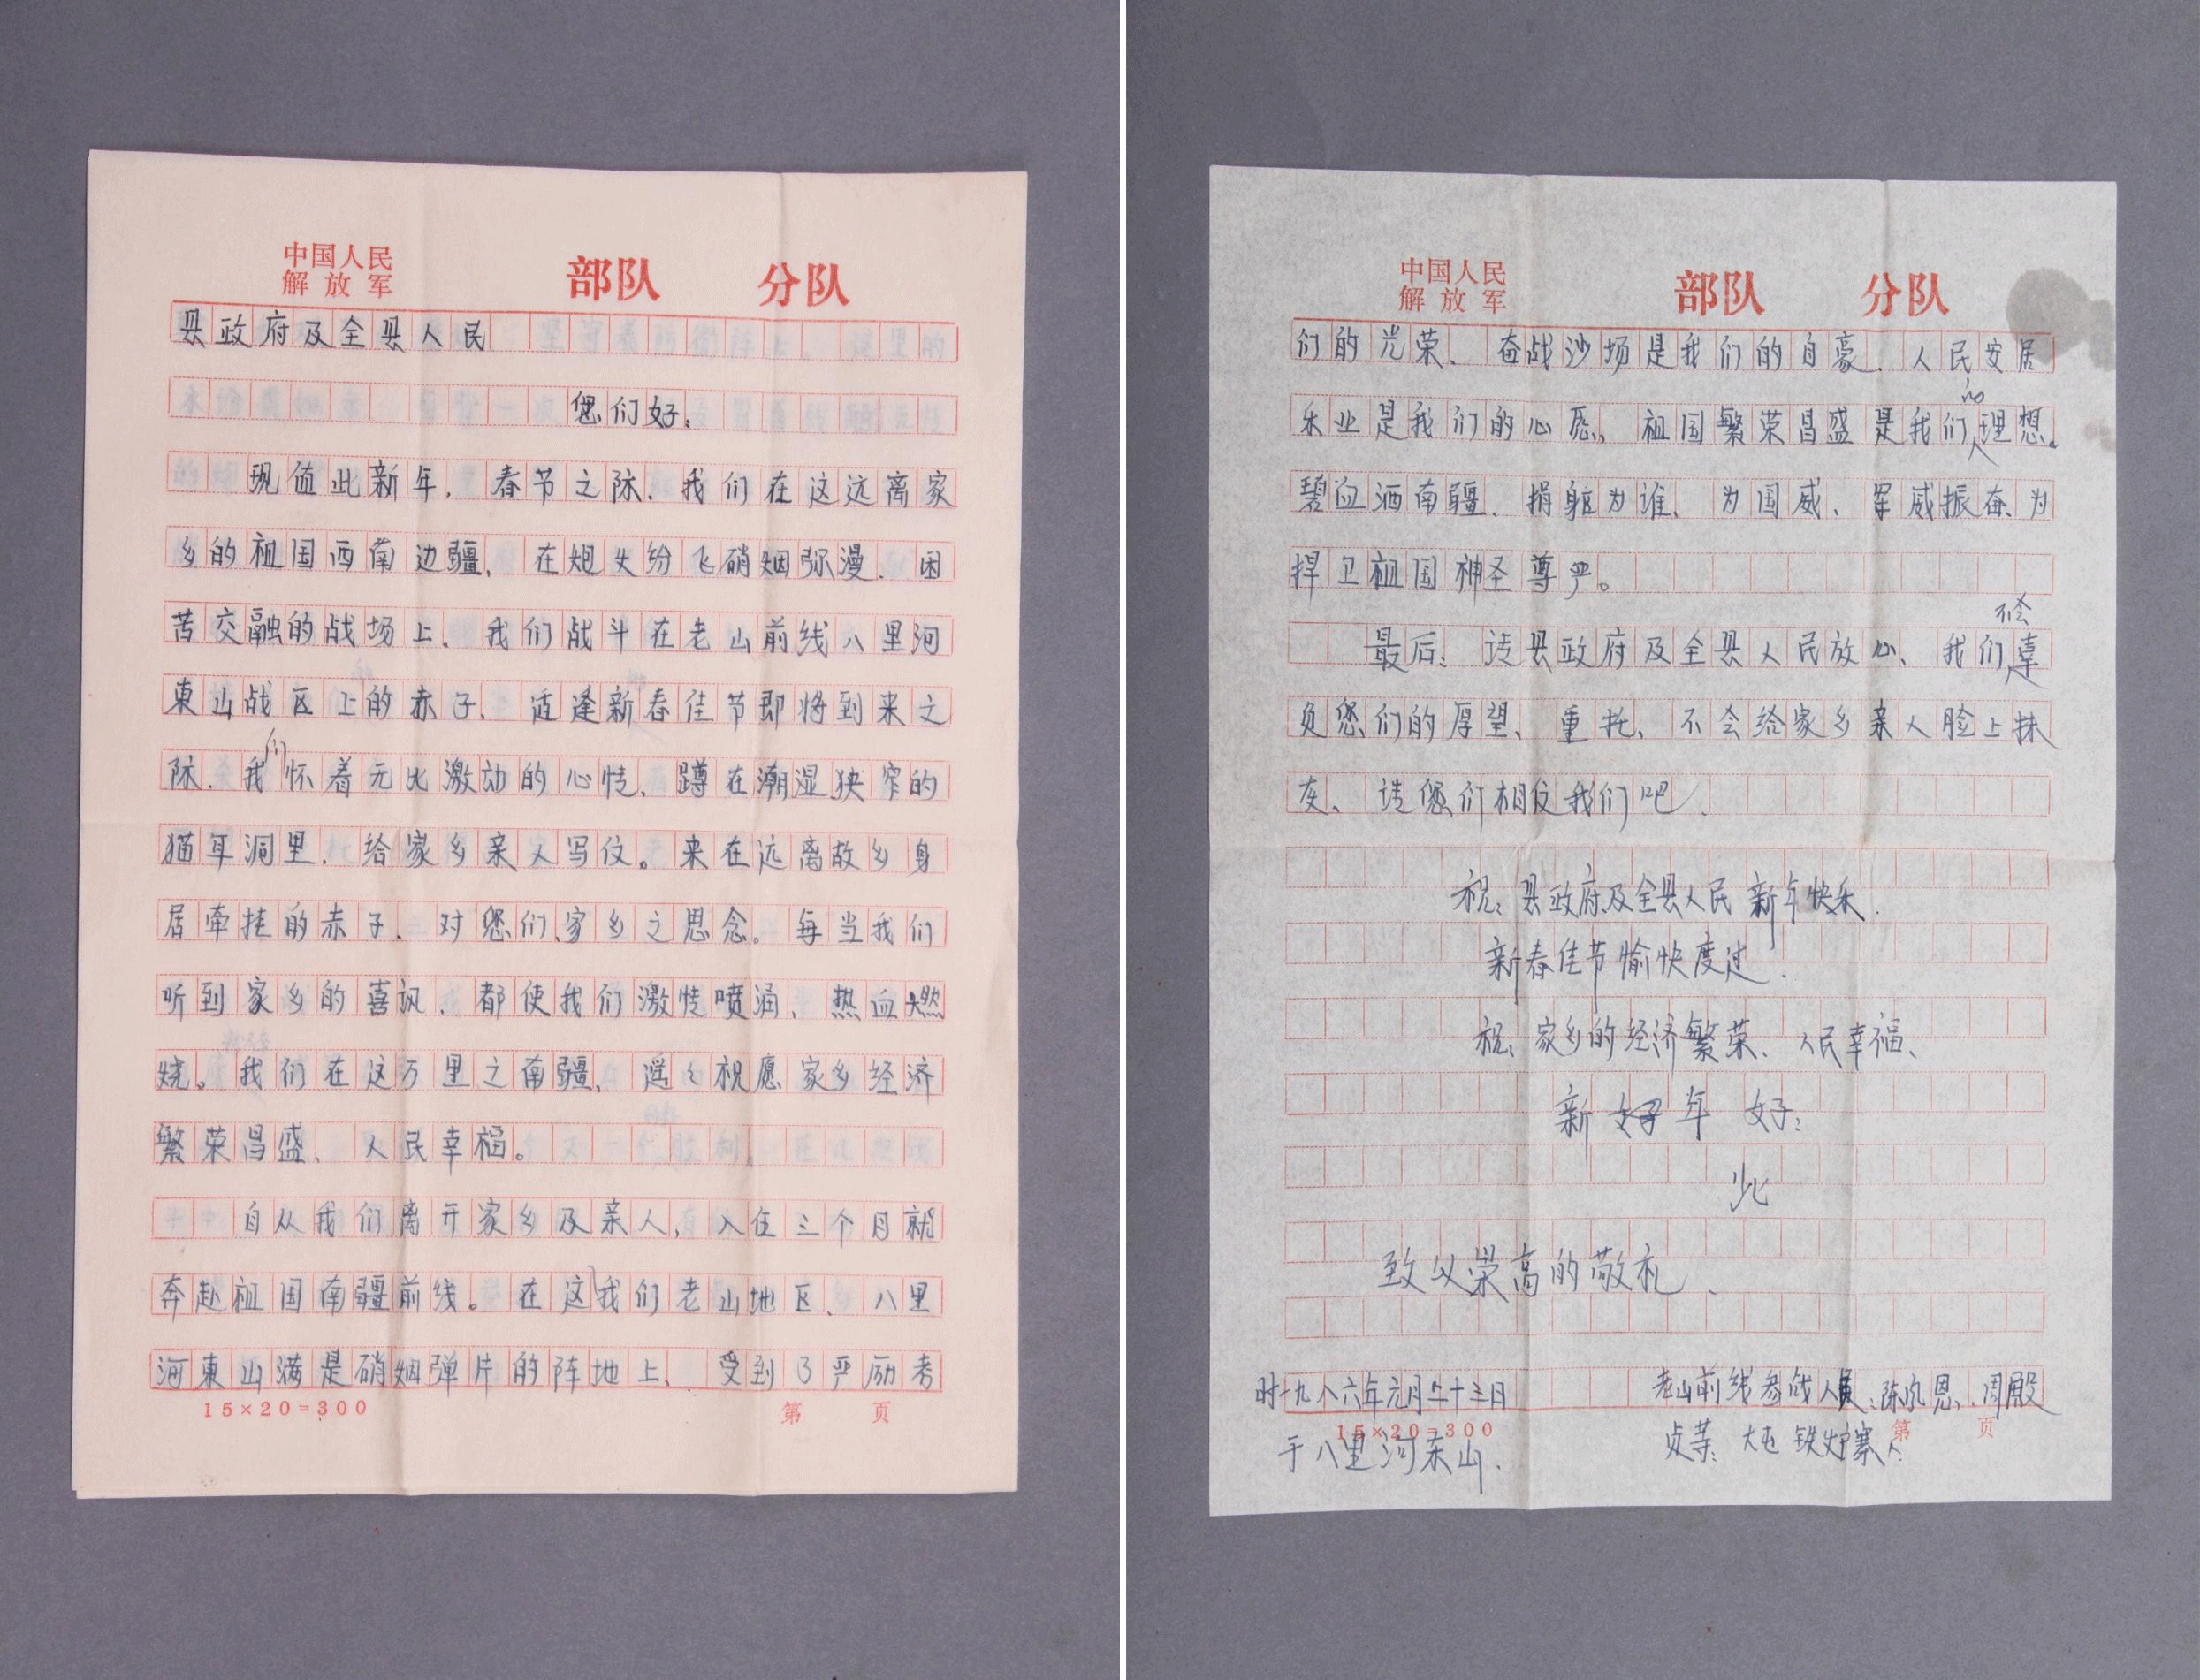 中国人民
解放军 部队 分队
县政府及全县人民
您们好.
现值此新年.春节之际.我们在这远离家
乡的祖国西南边疆、在炮火纷飞硝烟弥漫.困
苦交融的战场上、我们战斗在老山前线八里河
東山战区上的赤子、适逢新春佳节即将到来之
际.我们怀着无比激动的心情、蹲在潮湿狭窄的
猫耳洞里.给家乡亲人写信。来在远离故乡身
居牵挂的赤子、对您们、家乡之思念。每当我们
听到家乡的喜讯.都使我们激情喷涌、热血燃
烧。我们在这万里之南疆、遥々祝愿家乡经济
繁荣昌盛、人民幸福。
自从我们离开家乡及亲人,入伍三个月就
奔赴祖国南疆前线。在这我们老山地区、八里
河東山满是硝烟弹片的阵地上、受到了严励考
15×20=300 第 页
中国人民
解放军 部队 分队
们的光荣、奋战沙场是我们的自豪.人民安居
乐业是我们的心愿、祖国繁荣昌盛是我们的理想。
碧血洒南疆、捐躯为谁、为国威、军威振奋、为
捍卫祖国神圣尊严。
最后:请县政府及全县人民放心、我们不会辜
负您们的厚望、重托、不会给家乡亲人脸上抹
灰、请您们相信我们吧.
祝:县政府及全县人民新年快乐.
新春佳节愉快度过.
祝:家乡的经济繁荣、人民幸福、
新年 好:
此
致以崇高的敬礼.
时一九八六年元月二十三日 老山前线参战人员:陈凤恩、周殿
15×20=300 第 页
于八里河东山. 贞等:大屯铁炉寨人.